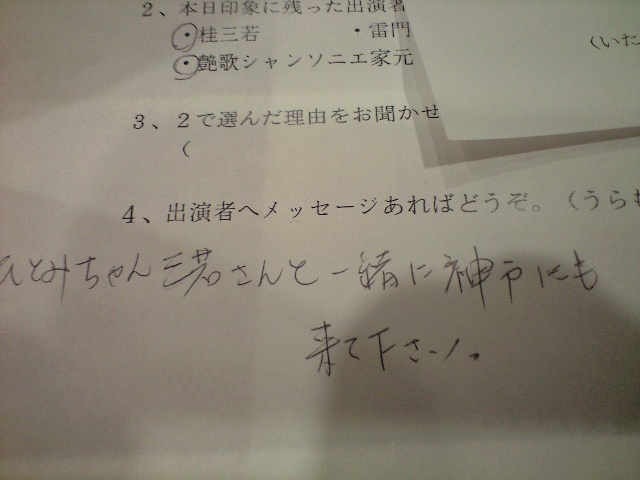 2、本日印象に残った出演者
・桂三若 ・雷門
(いた
・艶歌シャンソニエ家元
3、2で選んだ理由をお聞かせ
(
4、出演者へメッセージあればどうぞ。(うら
ひとみちゃん三若さんと一緒に神戸にも
来て下さい。